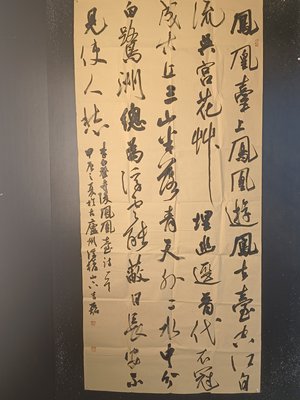 鳳凰臺上鳳凰遊鳳去臺空江自
流吳宮花艸埋幽逕晉代衣冠
成古丘三山半落青天外二水中分
白鷺洲總為浮雲能蔽日長安不
見使人愁
李白登金陵鳳凰臺詩一首
甲辰之夏於古廬州